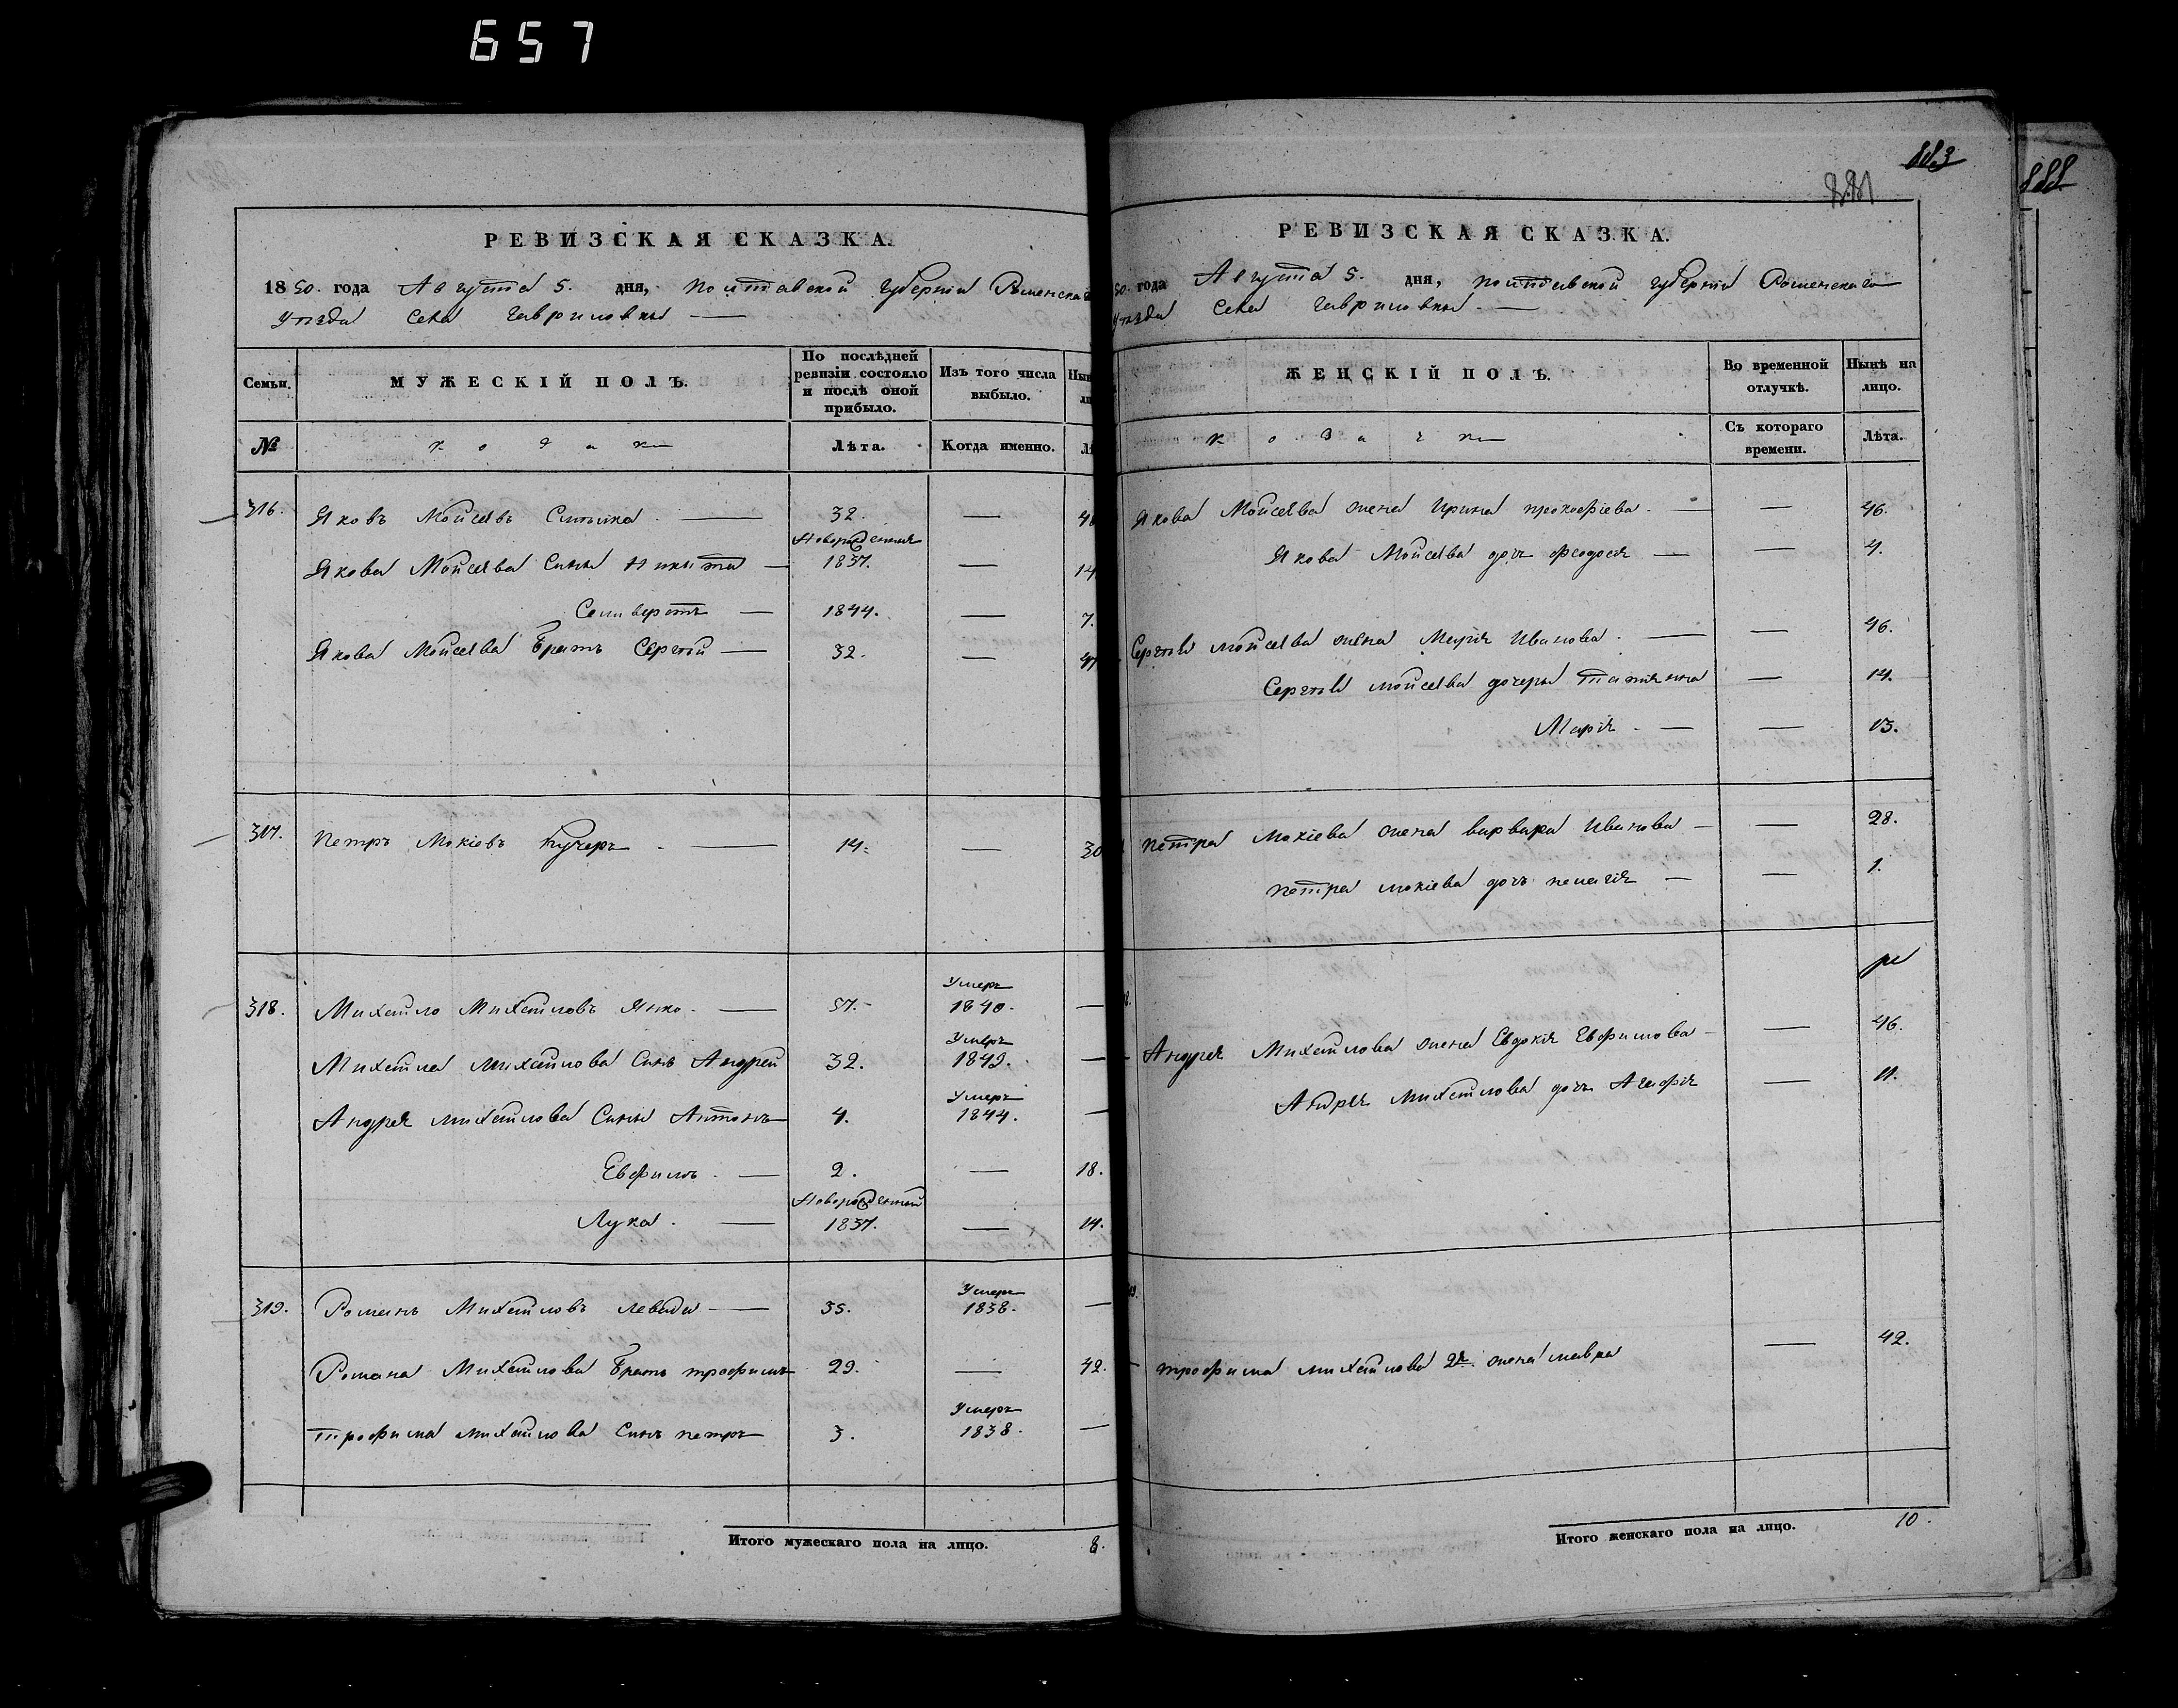 657
883
881
888
РЕВИЗСКАЯ СКАЗКА.
1850. года Августа 5. дня, Полтавской губернии Роменскаго
Уезда Села Гавриловки
Семьи.
МУЖЕСКІЙ ПОЛЪ.
По послѣдней ревизіи состояло и послѣ оной прибыло.
Изъ того числа выбыло.
№
Козаки
Лѣта.
Когда именно.
316. Яковъ Мойсеевъ 32. —
Новорожденные
Якова Мойсеева Сыны Никита 1837. — 14
Селиверстъ 1844. — 7.
Якова Мойсеева Братъ Сергѣй 32. —
317. Петръ Мокіевъ Кучеръ 14. — 30
Умеръ
318. Михайло Михайловъ Янко 57. 1840. —
Умеръ
Михайла Михайлова Сынъ Андрей 32. 1849. —
Умеръ
Андрея Михайлова Сыны Антонъ 4. 1844. —
Евфимъ 2. — 18.
Новорожденный
Лука 1837. — 14.
Умеръ
319. Романъ Михайловъ Левада 35. 1838. —
Романа Михайлова Братъ Трофимъ 29. — 42.
Умеръ
Трофима Михайлова Сынъ Петръ 3. 1838. —
Итого мужескаго пола на лицо. 8.
РЕВИЗСКАЯ СКАЗКА.
50. года Августа 5. дня, Полтавской губернии Роменскаго
Уезда Села Гавриловки
ЖЕНСКІЙ ПОЛЪ.
Во временной отлучкѣ.
Нынѣ на лицо.
Козачки
Съ котораго времени.
Лѣта.
Якова Мойсеева жена Ирина Прокофіева — 46.
Якова Мойсеева дочь Феодосія — 4.
Сергѣя Мойсеева жена Марія Иванова — 46.
Сергѣя Мойсеева дочери Татіяна — 14.
Марія — 13.
Петра Мокіева жена Варвара Иванова — 28.
Петра Мокіева дочь Пелагія — 1.
Андрея Михайлова жена Евдокія Евфимова — 46.
Андрея Михайлова дочь Агафія — 11.
Трофима Михайлова 2я жена Мавра — 42.
Итого женскаго пола на лицо. 10.